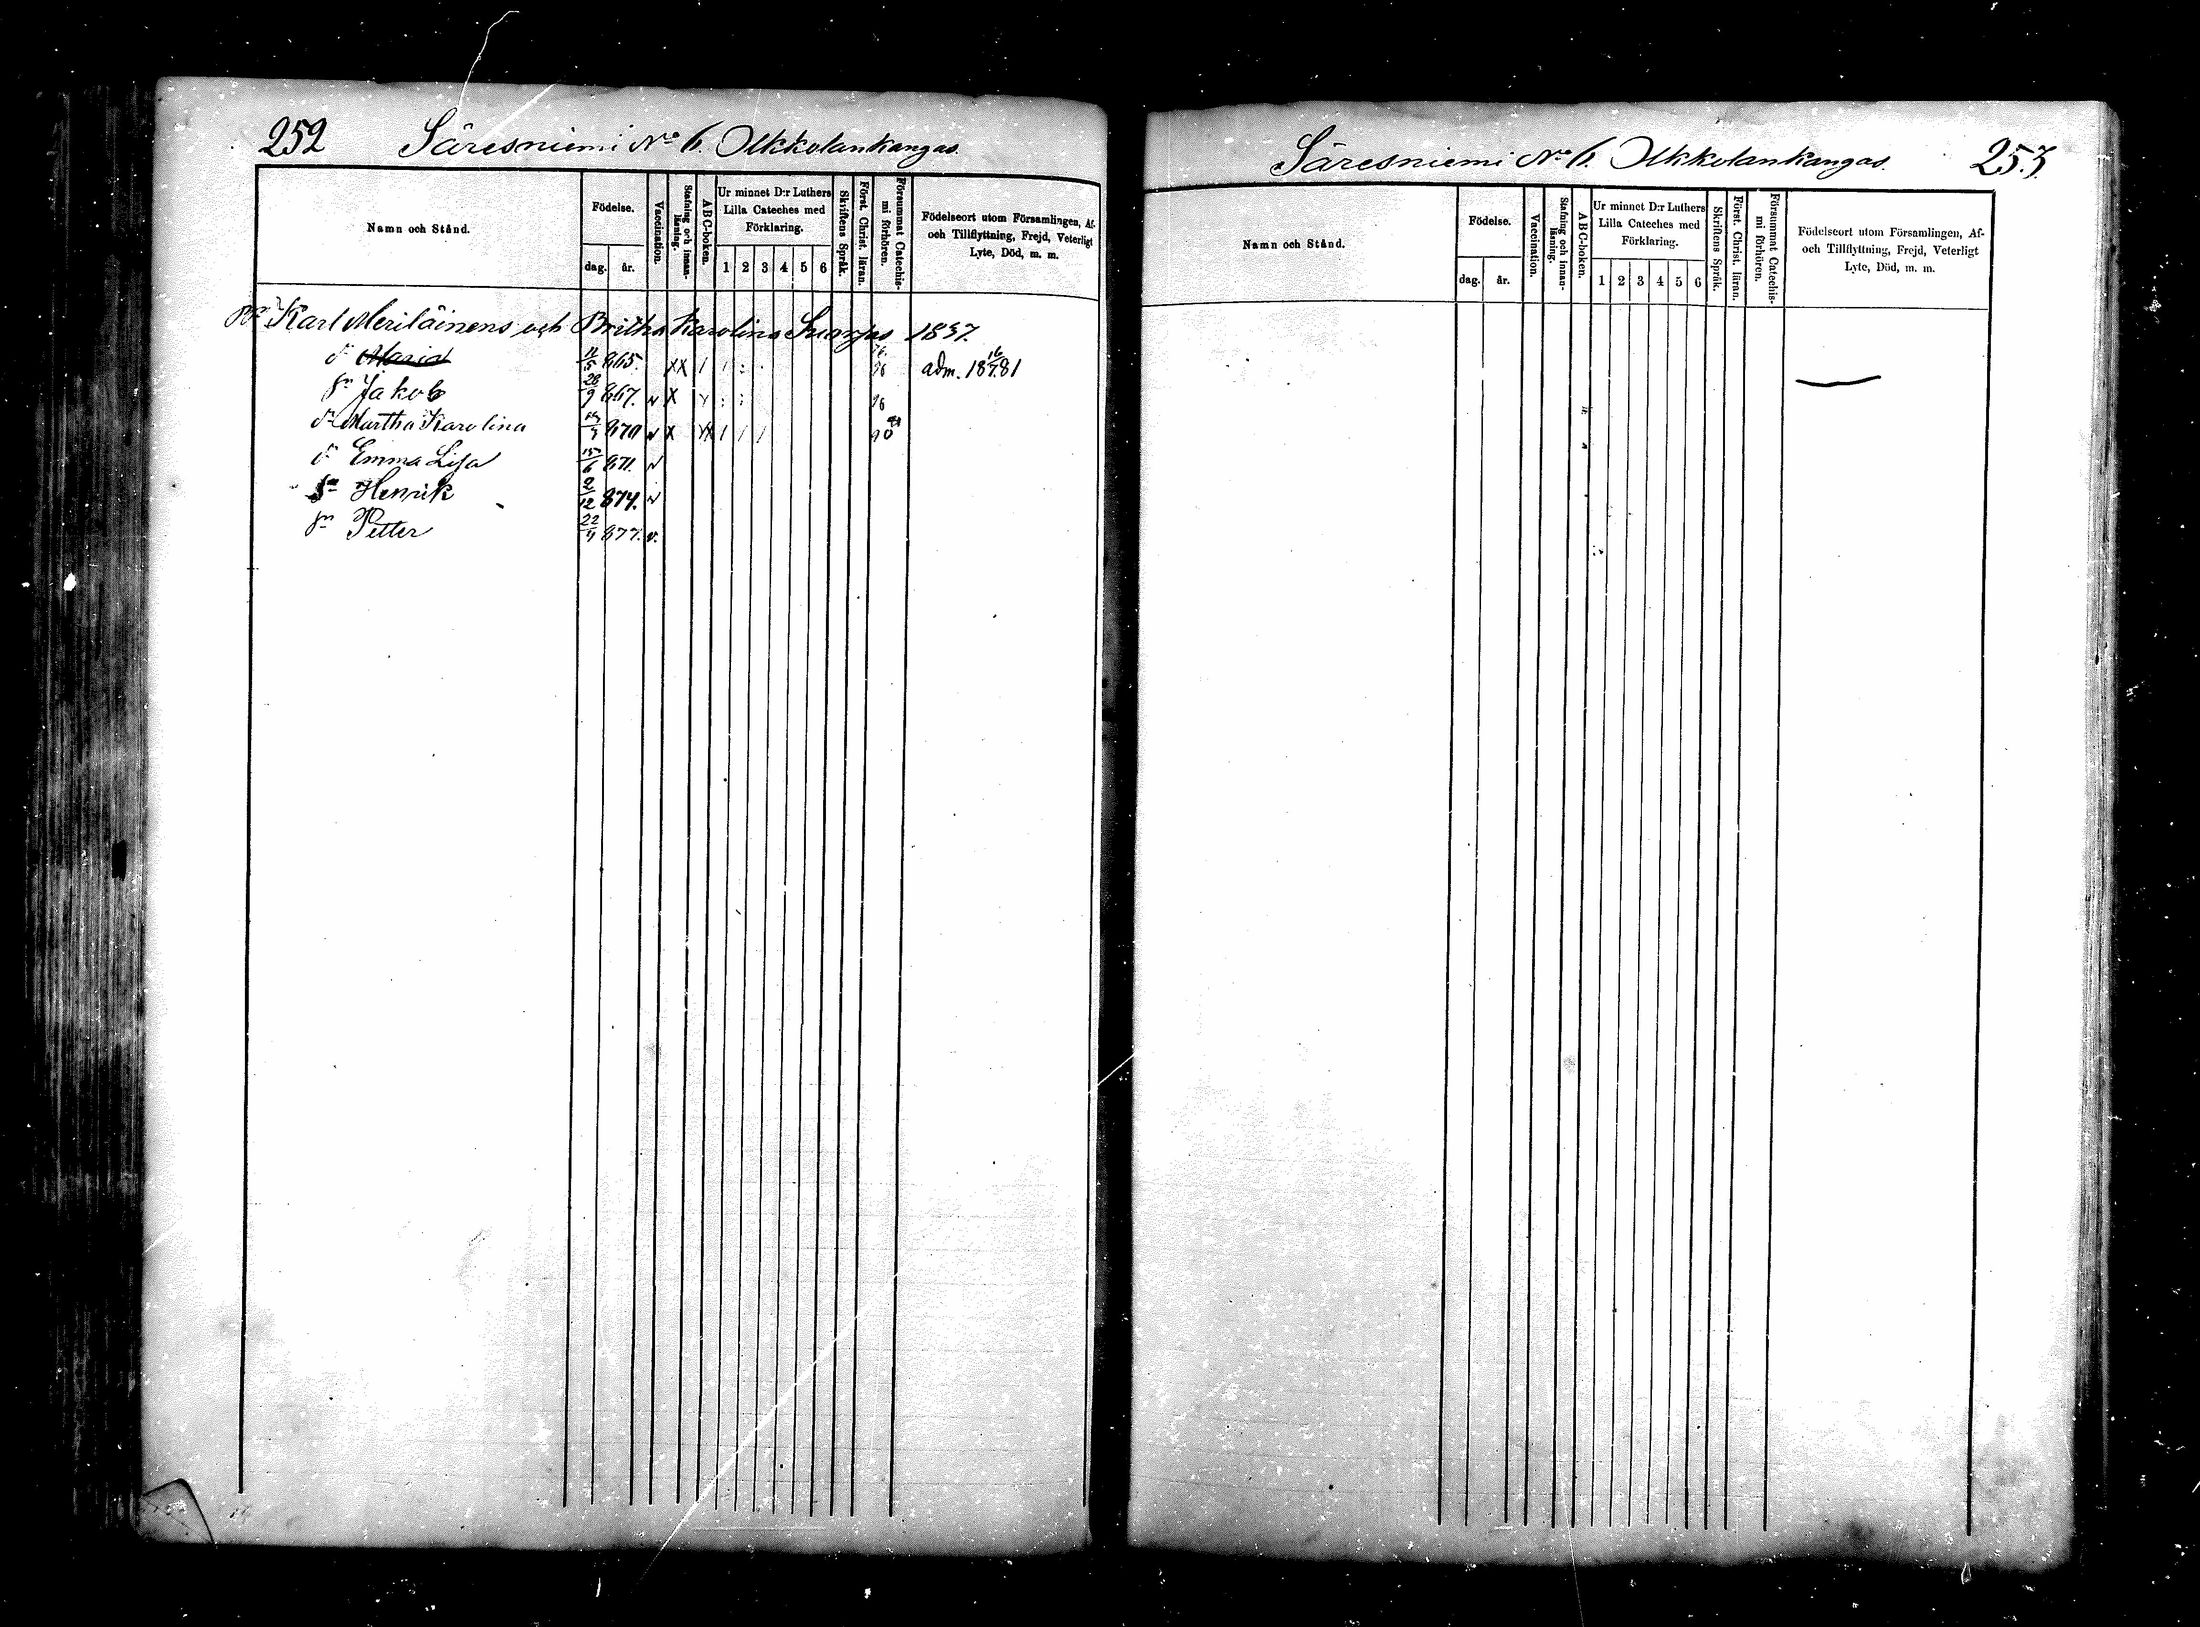 252 Säresniemi No 6. Ukkolankangas.
Namn och Stånd.
Födelse.
dag. år.
Vaccination.
Stafning och innanläsning.
ABC-boken.
Ur minnet D:r Luthers
Lilla Cateches med
Förklaring.
1 2 3 4 5 6
Skriftens Språk.
Först. Christ. läran.
Försummat Catechismi förhören.
Födelseort utom Församlingen, Af-
och Tillflyttning, Frejd, Veterligt
Lyte, Död, m. m.
Karl Meriläinens och Britha Karolina 1837.
dr Maria 865. XX adm. 18 16/7 81
sn Jakob 28/9 867. v X
dr Martha Karolina 870 v X
dr Emma Lisa 15/6 871. v
sn Henrik 2/12 874. v
sn Petter 22/9 877. v.
Säresniemi No 6. Ukkolankangas. 253.
Namn och Stånd.
Födelse.
dag. år.
Vaccination.
Stafning och innanläsning.
ABC-boken.
Ur minnet D:r Luthers
Lilla Cateches med
Förklaring.
1 2 3 4 5 6
Skriftens Språk.
Först. Christ. läran.
Försummat Catechismi förhören.
Födelseort utom Församlingen, Af-
och Tillflyttning, Frejd, Veterligt
Lyte, Död, m. m.